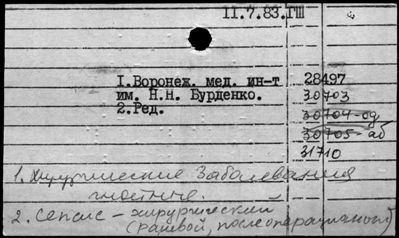 II.7.83.ГШ
I.Воронеж. мед. ин-т 28497
им. Н.Н. Бурденко. 30703
2.Ред. 30704-од
30705-аб
31710
1. Хирургические заболевания
гнойные.
2. Сепсис - хирургический
(раневой, послеоперационный)